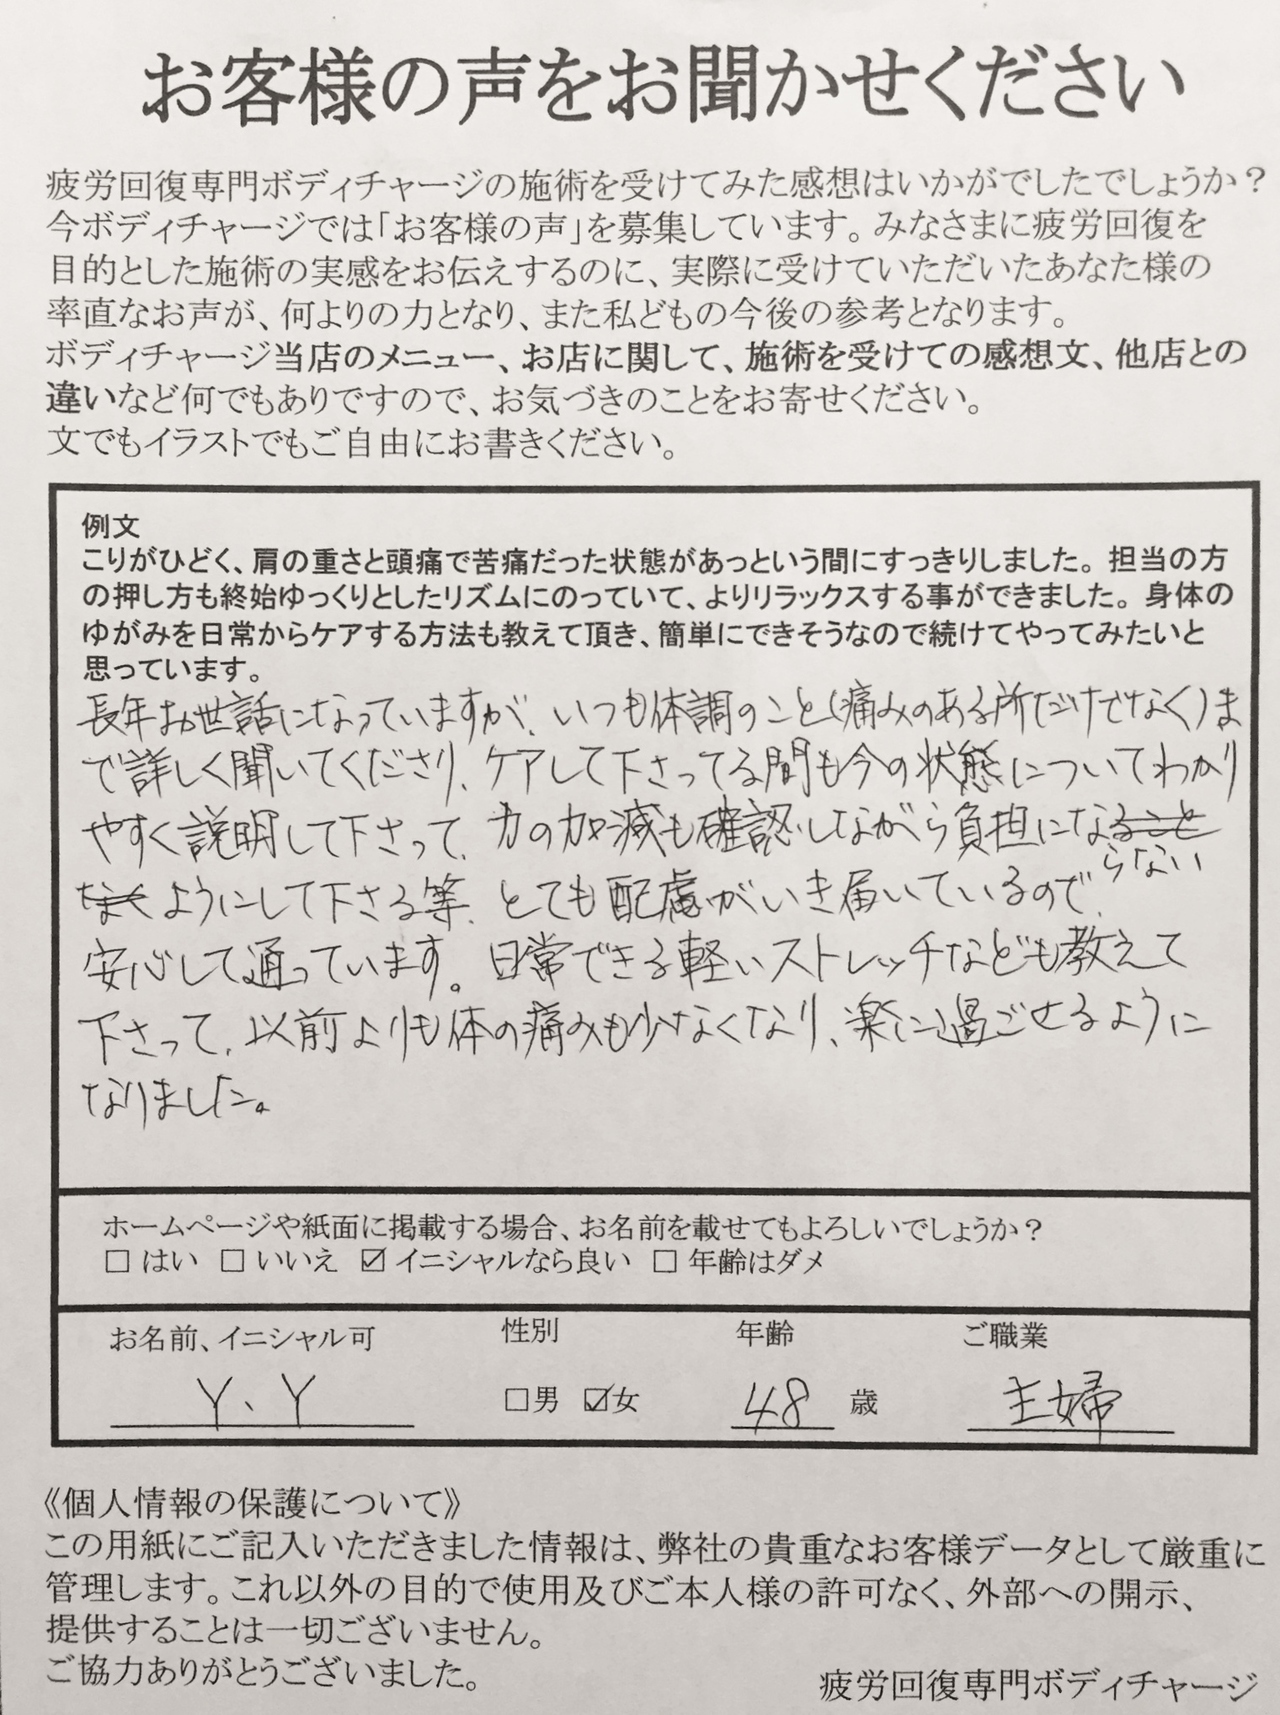 お客様の声をお聞かせください
疲労回復専門ボディチャージの施術を受けてみた感想はいかがでしたでしょうか？
今ボディチャージでは「お客様の声」を募集しています。みなさまに疲労回復を
目的とした施術の実感をお伝えするのに、実際に受けていただいたあなた様の
率直なお声が、何よりの力となり、また私どもの今後の参考となります。
ボディチャージ当店のメニュー、お店に関して、施術を受けての感想文、他店との
違いなど何でもありですので、お気づきのことをお寄せください。
文でもイラストでもご自由にお書きください。
例文
こりがひどく、肩の重さと頭痛で苦痛だった状態があっという間にすっきりしました。担当の方
の押し方も終始ゆっくりとしたリズムにのっていて、よりリラックスする事ができました。身体の
ゆがみを日常からケアする方法も教えて頂き、簡単にできそうなので続けてやってみたいと
思っています。
長年お世話になっていますが、いつも体調のこと(痛みのある所だけでなく)ま
で詳しく聞いてくださり、ケアして下さってる間も今の状態についてわかり
やすく説明して下さって、力の加減も確認しながら負担になること
らない
なく ようにして下さる等、とても配慮がいき届いているので、
安心して通っています。日常できる軽いストレッチなども教えて
下さって、以前よりも体の痛みも少なくなり、楽に過ごせるように
なりました。
ホームページや紙面に掲載する場合、お名前を載せてもよろしいでしょうか？
□ はい □ いいえ ☑ イニシャルなら良い □ 年齢はダメ
お名前、イニシャル可 性別 年齢 ご職業
Y、Y □男 ☑女 48 歳 主婦
《個人情報の保護について》
この用紙にご記入いただきました情報は、弊社の貴重なお客様データとして厳重に
管理します。これ以外の目的で使用及びご本人様の許可なく、外部への開示、
提供することは一切ございません。
ご協力ありがとうございました。
疲労回復専門ボディチャージ